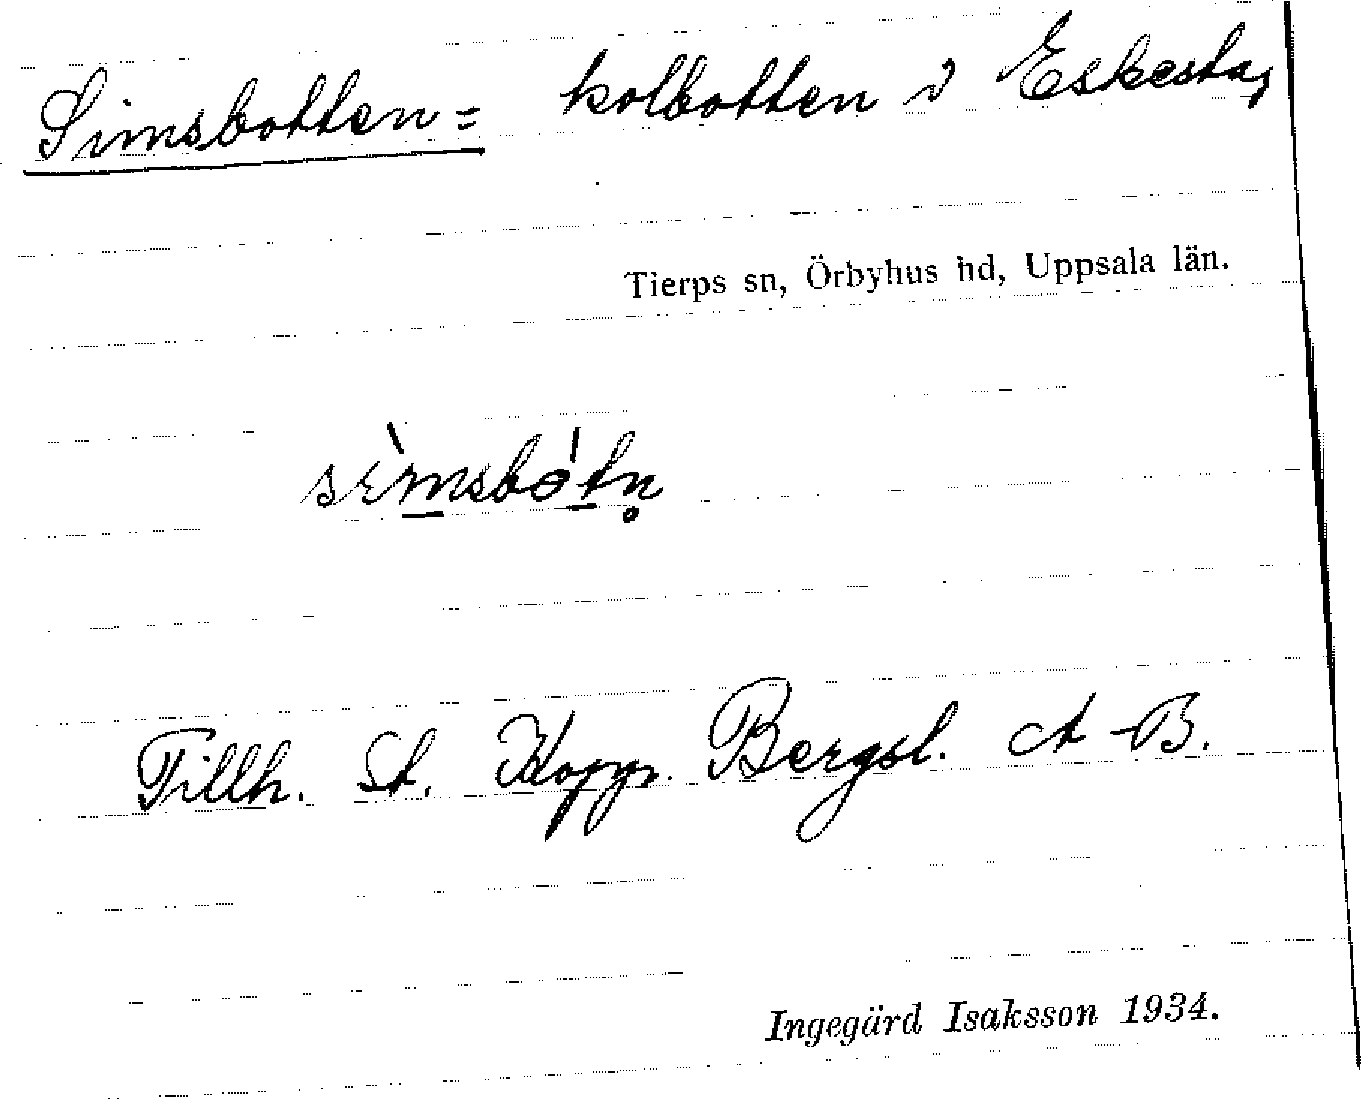 Simsbotten = kolbotten i Eskesta,
Tierps sn, Örbyhus hd, Uppsala län.
sìmsbòtn̥
Tillh. St. Kopp. Bergsl. A-B.
Ingegärd Isaksson 1934.